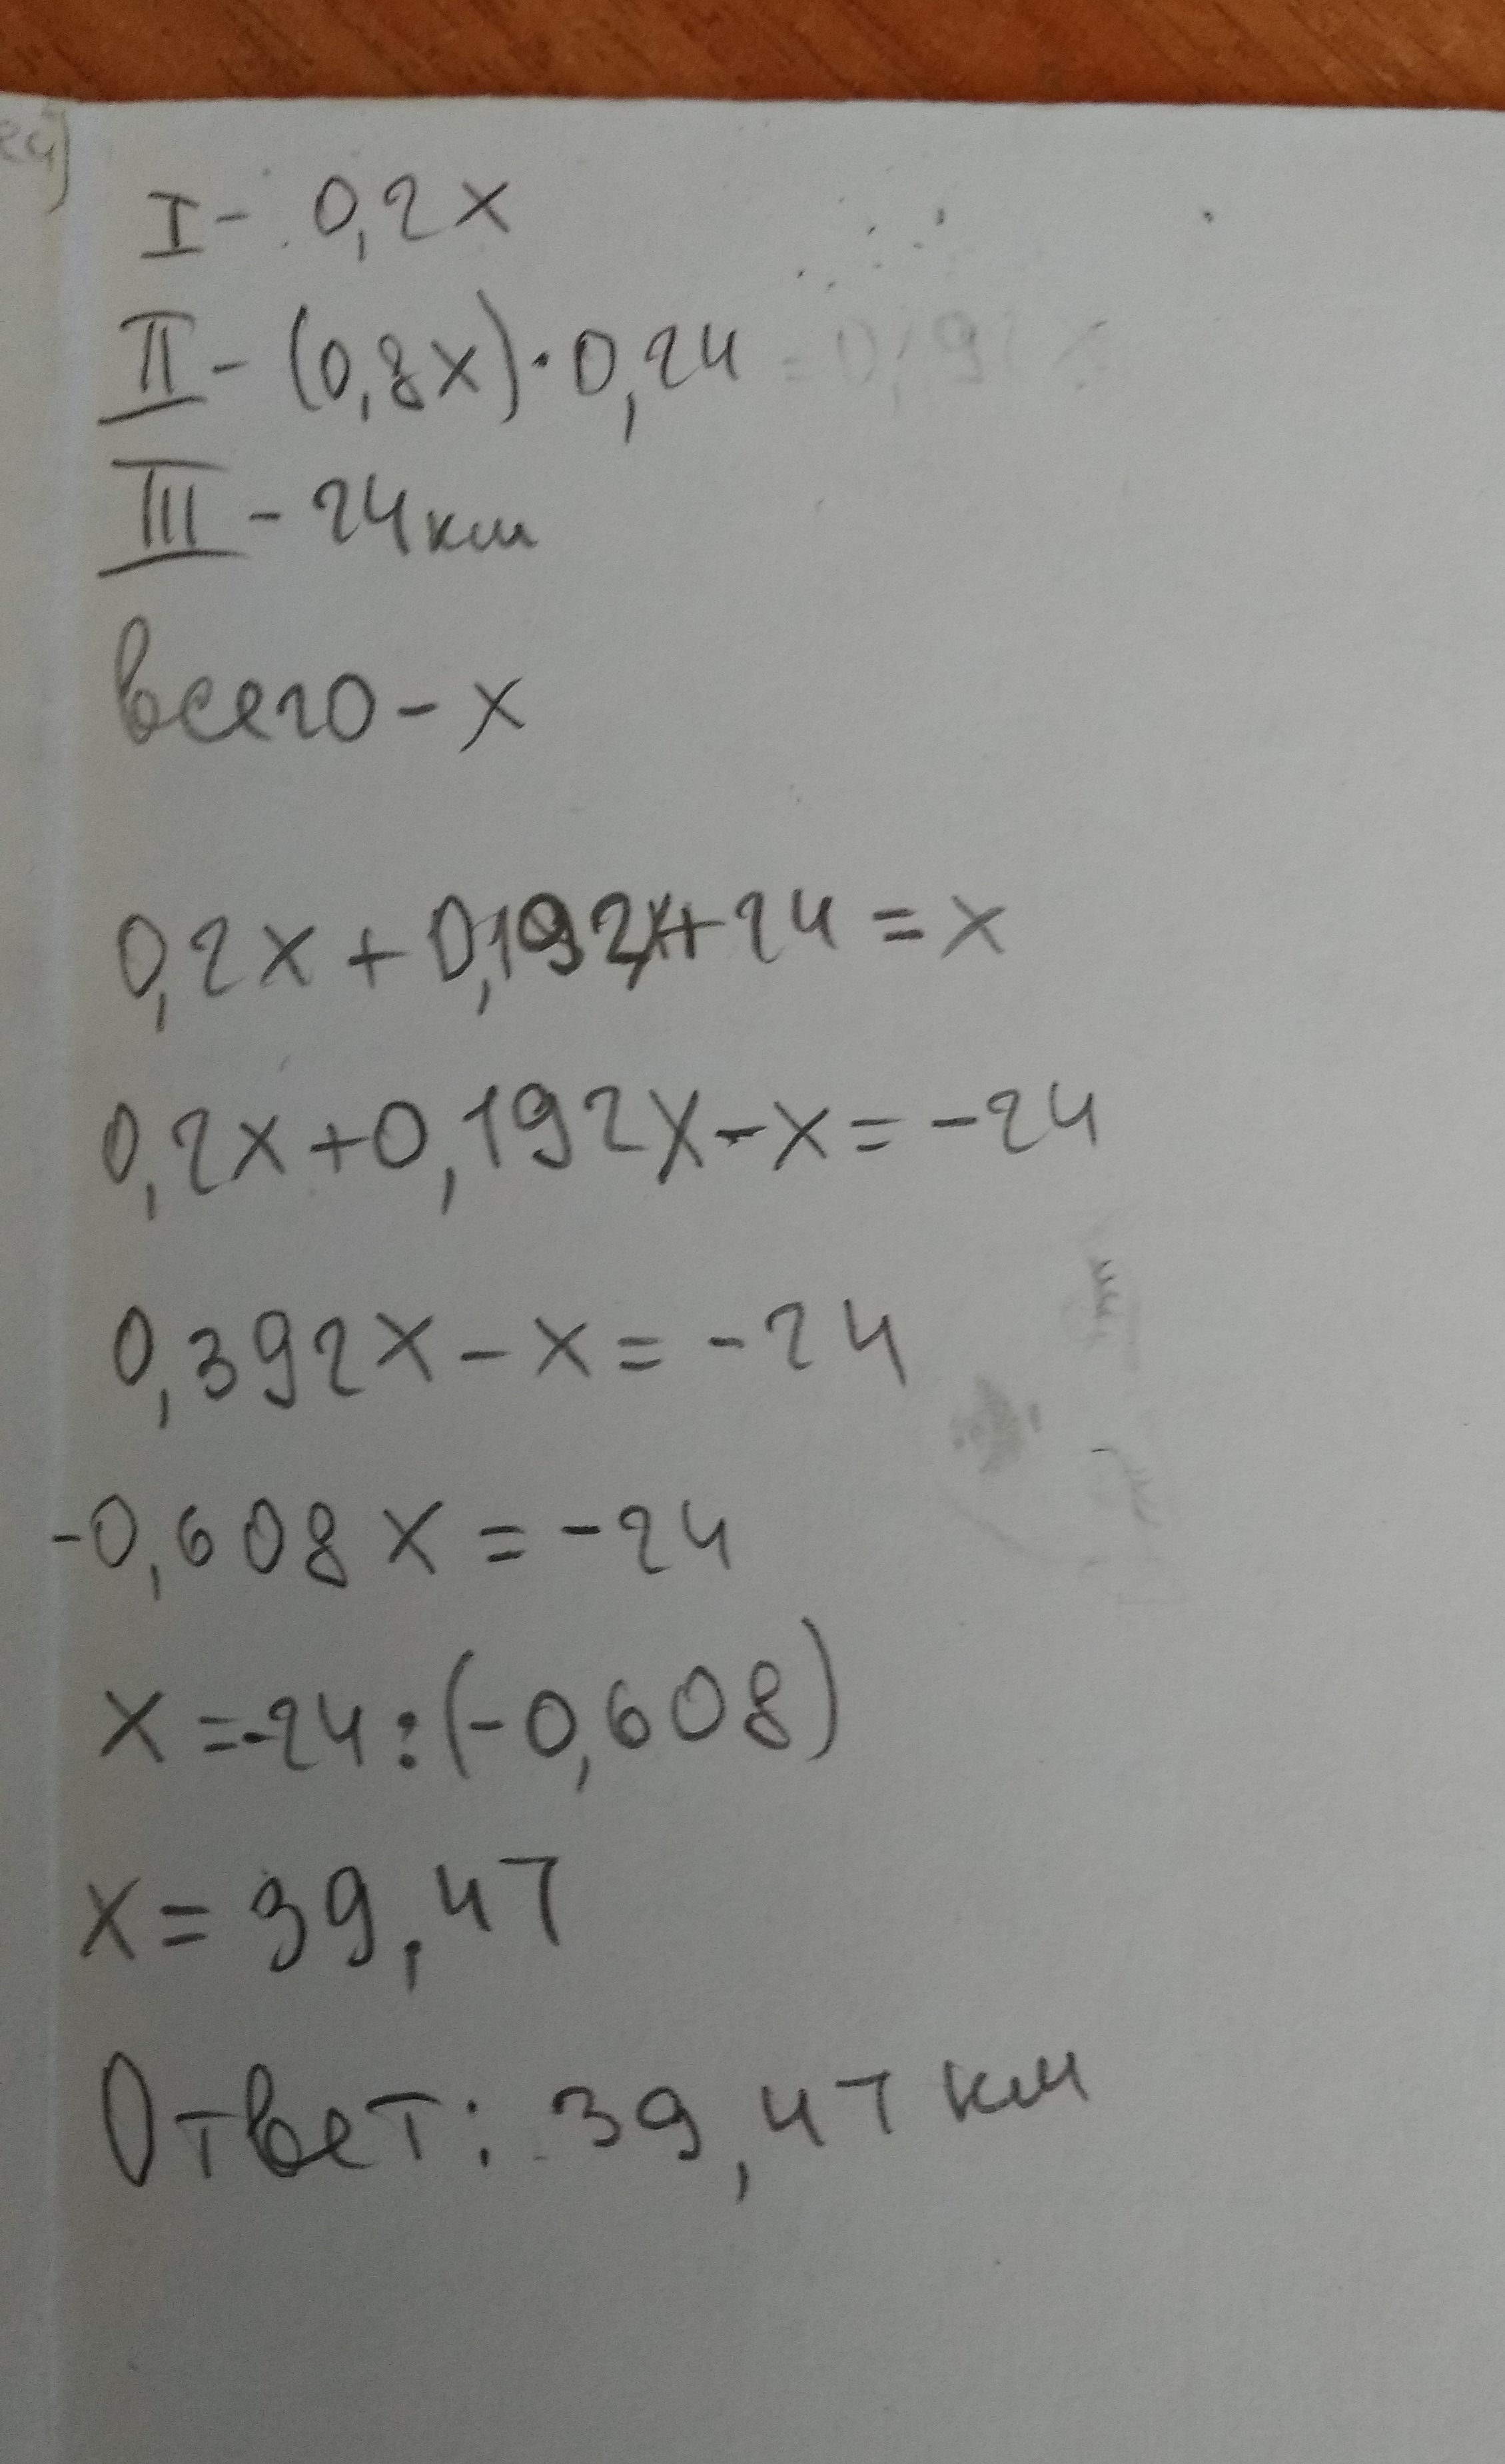 24)
I - 0,2x
II - (0,8x)·0,24
III - 24км
всего - x
0,2x + 0,192x + 24 = x
0,2x + 0,192x - x = -24
0,392x - x = -24
-0,608x = -24
x = -24 : (-0,608)
x = 39,47
Ответ: 39,47 км